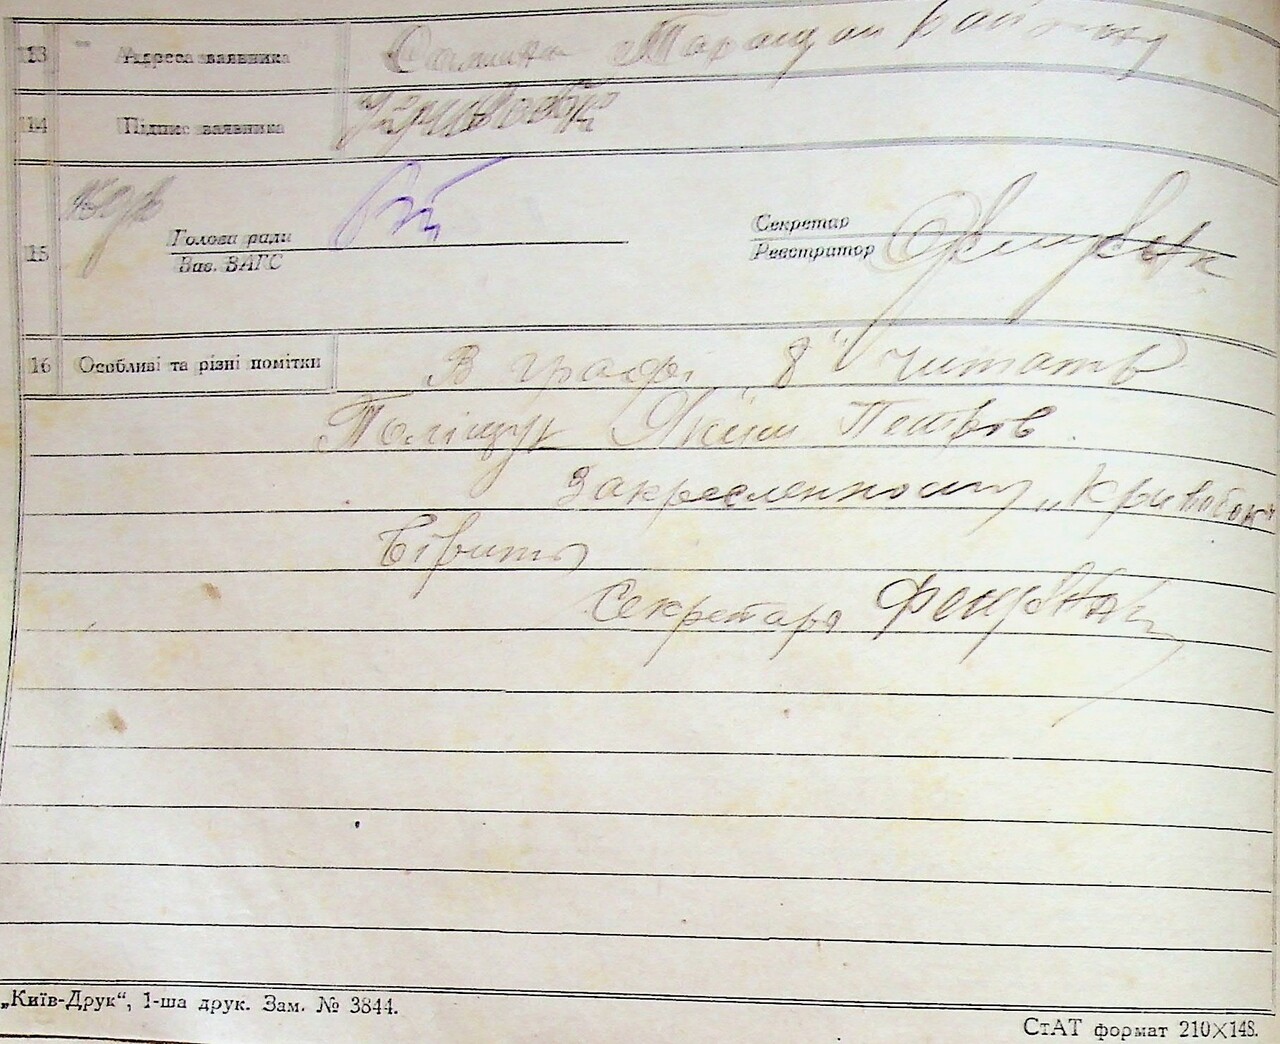 13 Адреса заявника Таращан району
14 Підпис заявника
15 Голова ради Секретар
Зав. ЗАГС Реєстратор
16 Особливі та різні помітки В графі „8" читать
Поліщук Якім Петров.
Закресленному „Кривобок"
вірить
Секретарь
„Київ-Друк", 1-ша друк. Зам. № 3844.
СтАТ формат 210×148.